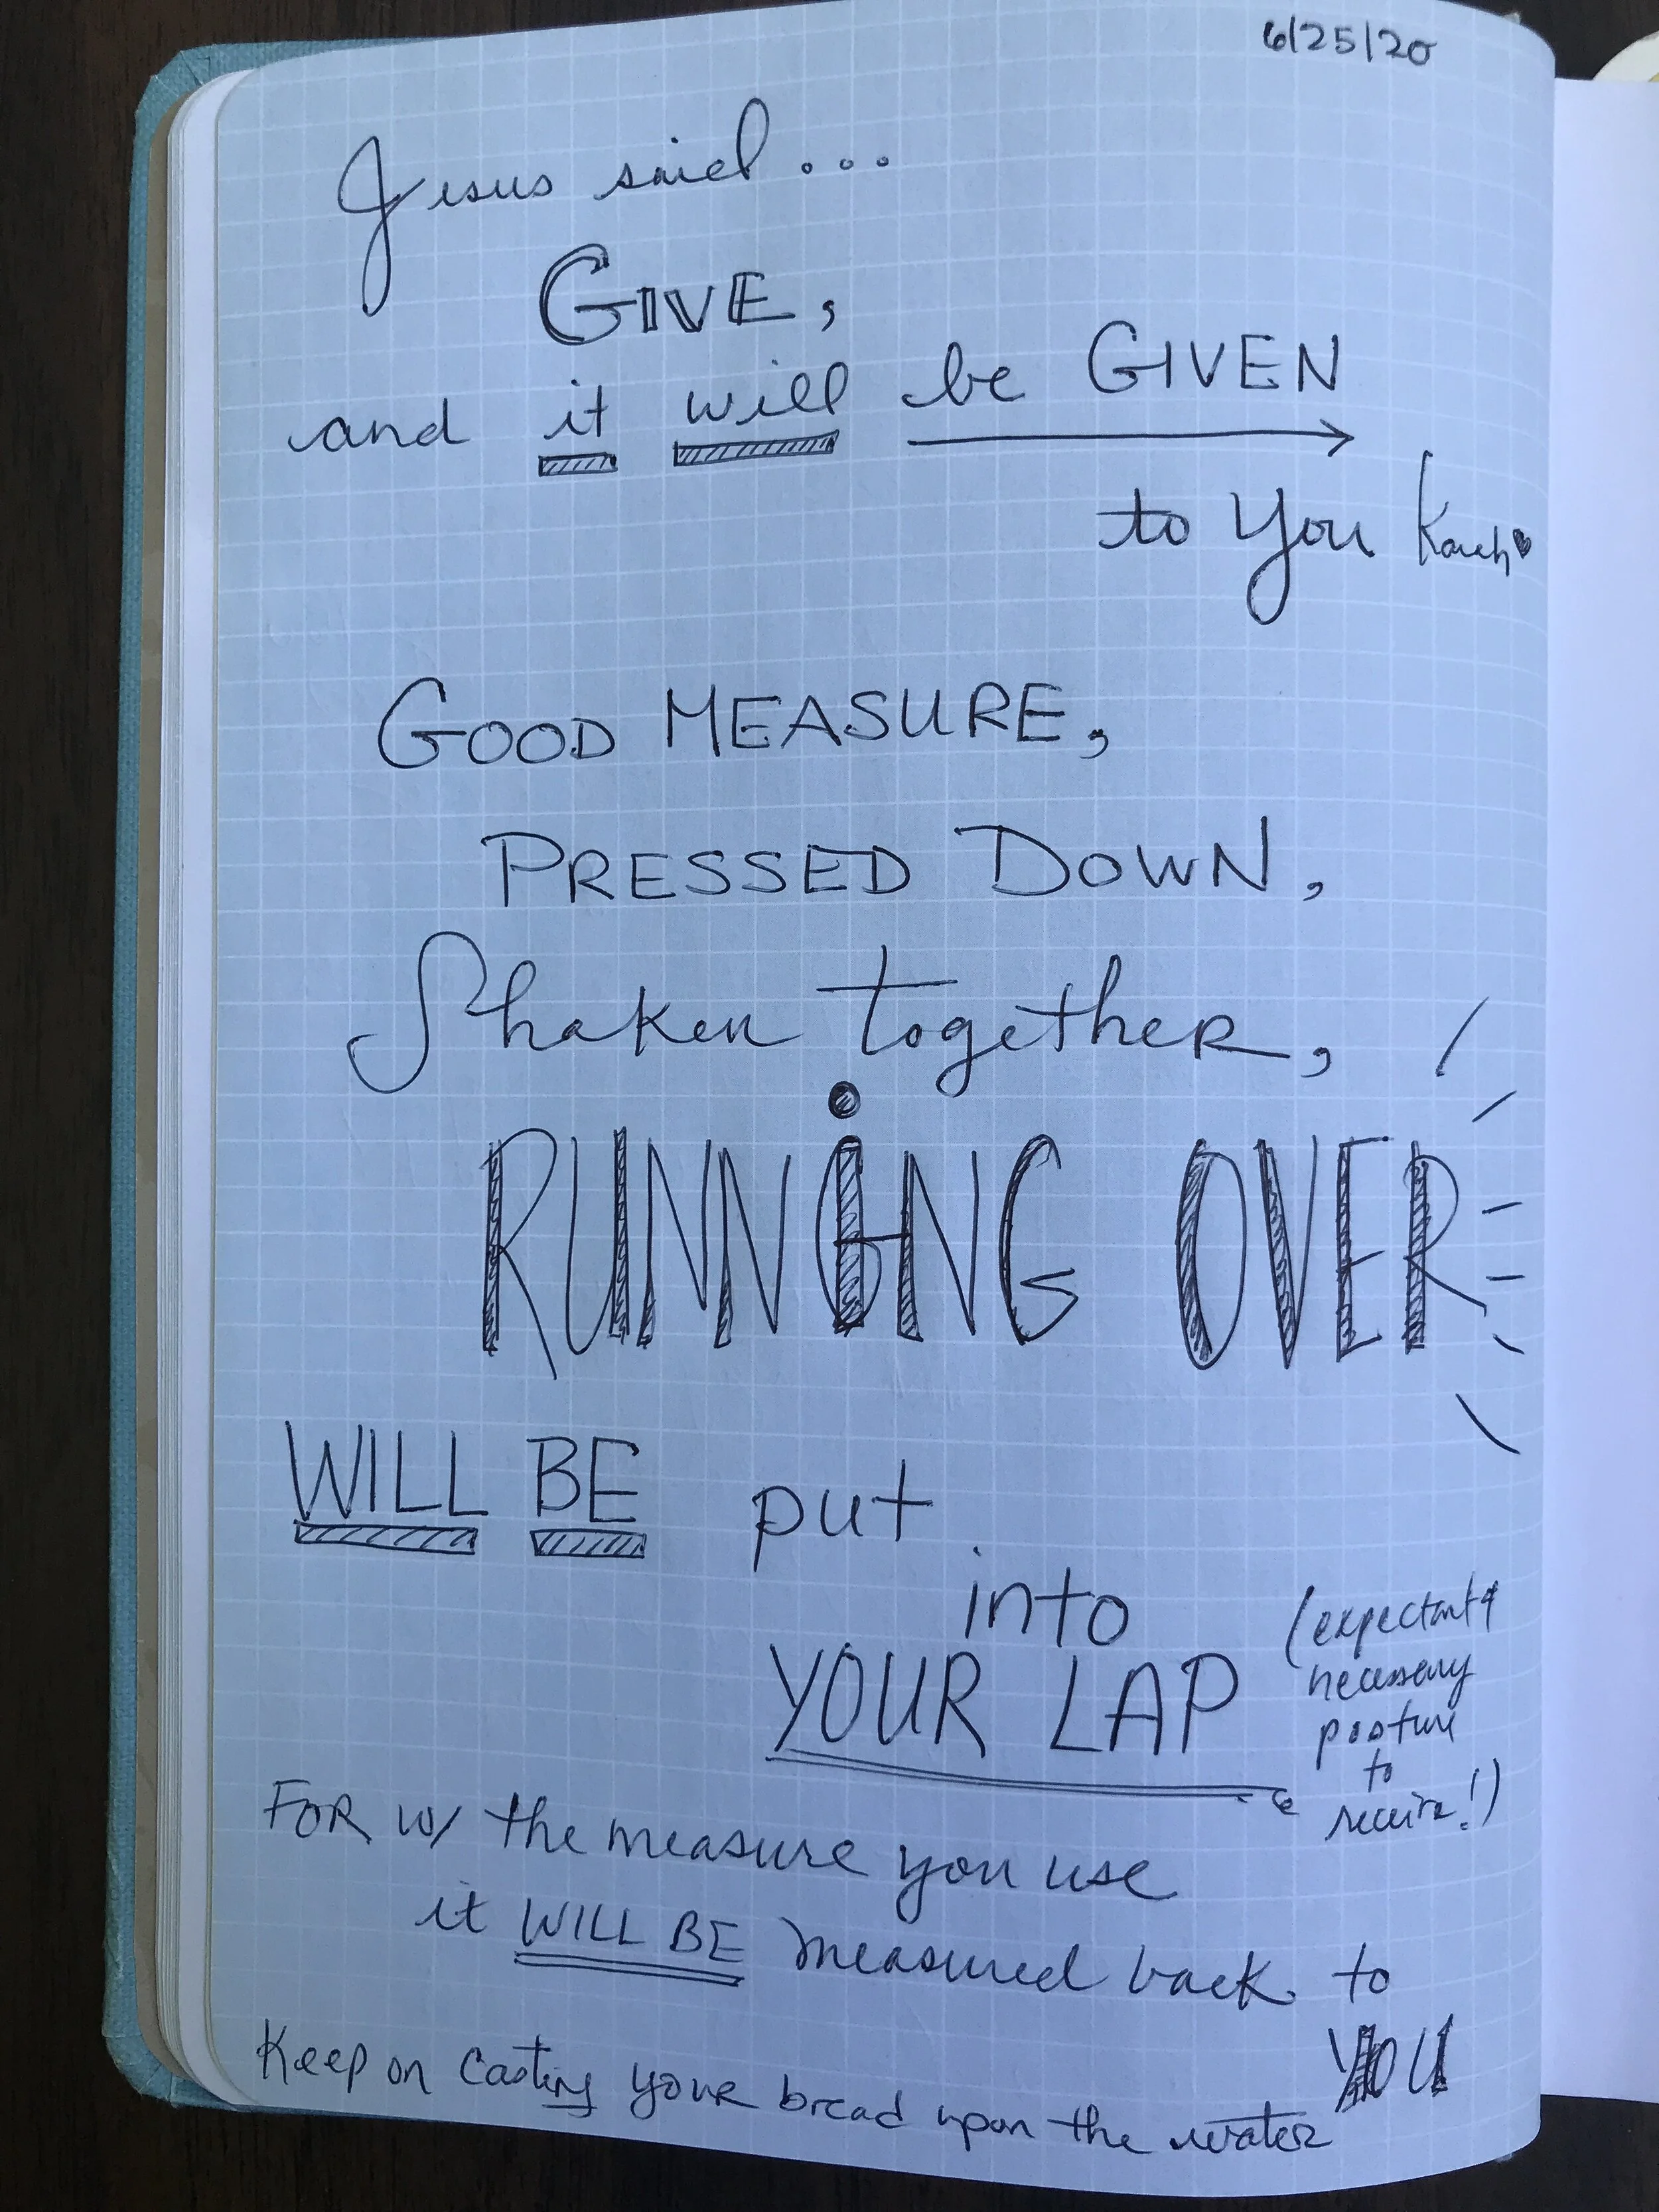 6/25/20
Jesus said...
GIVE,
and it will be GIVEN
to You
GOOD MEASURE,
PRESSED DOWN,
Shaken together,
RUNNING OVER
WILL BE put
into
YOUR LAP
(expectant &
necessary
posture
to
receive!)
FOR w/ the measure you use
it WILL BE measured back to
YOU
Keep on casting your bread upon the water